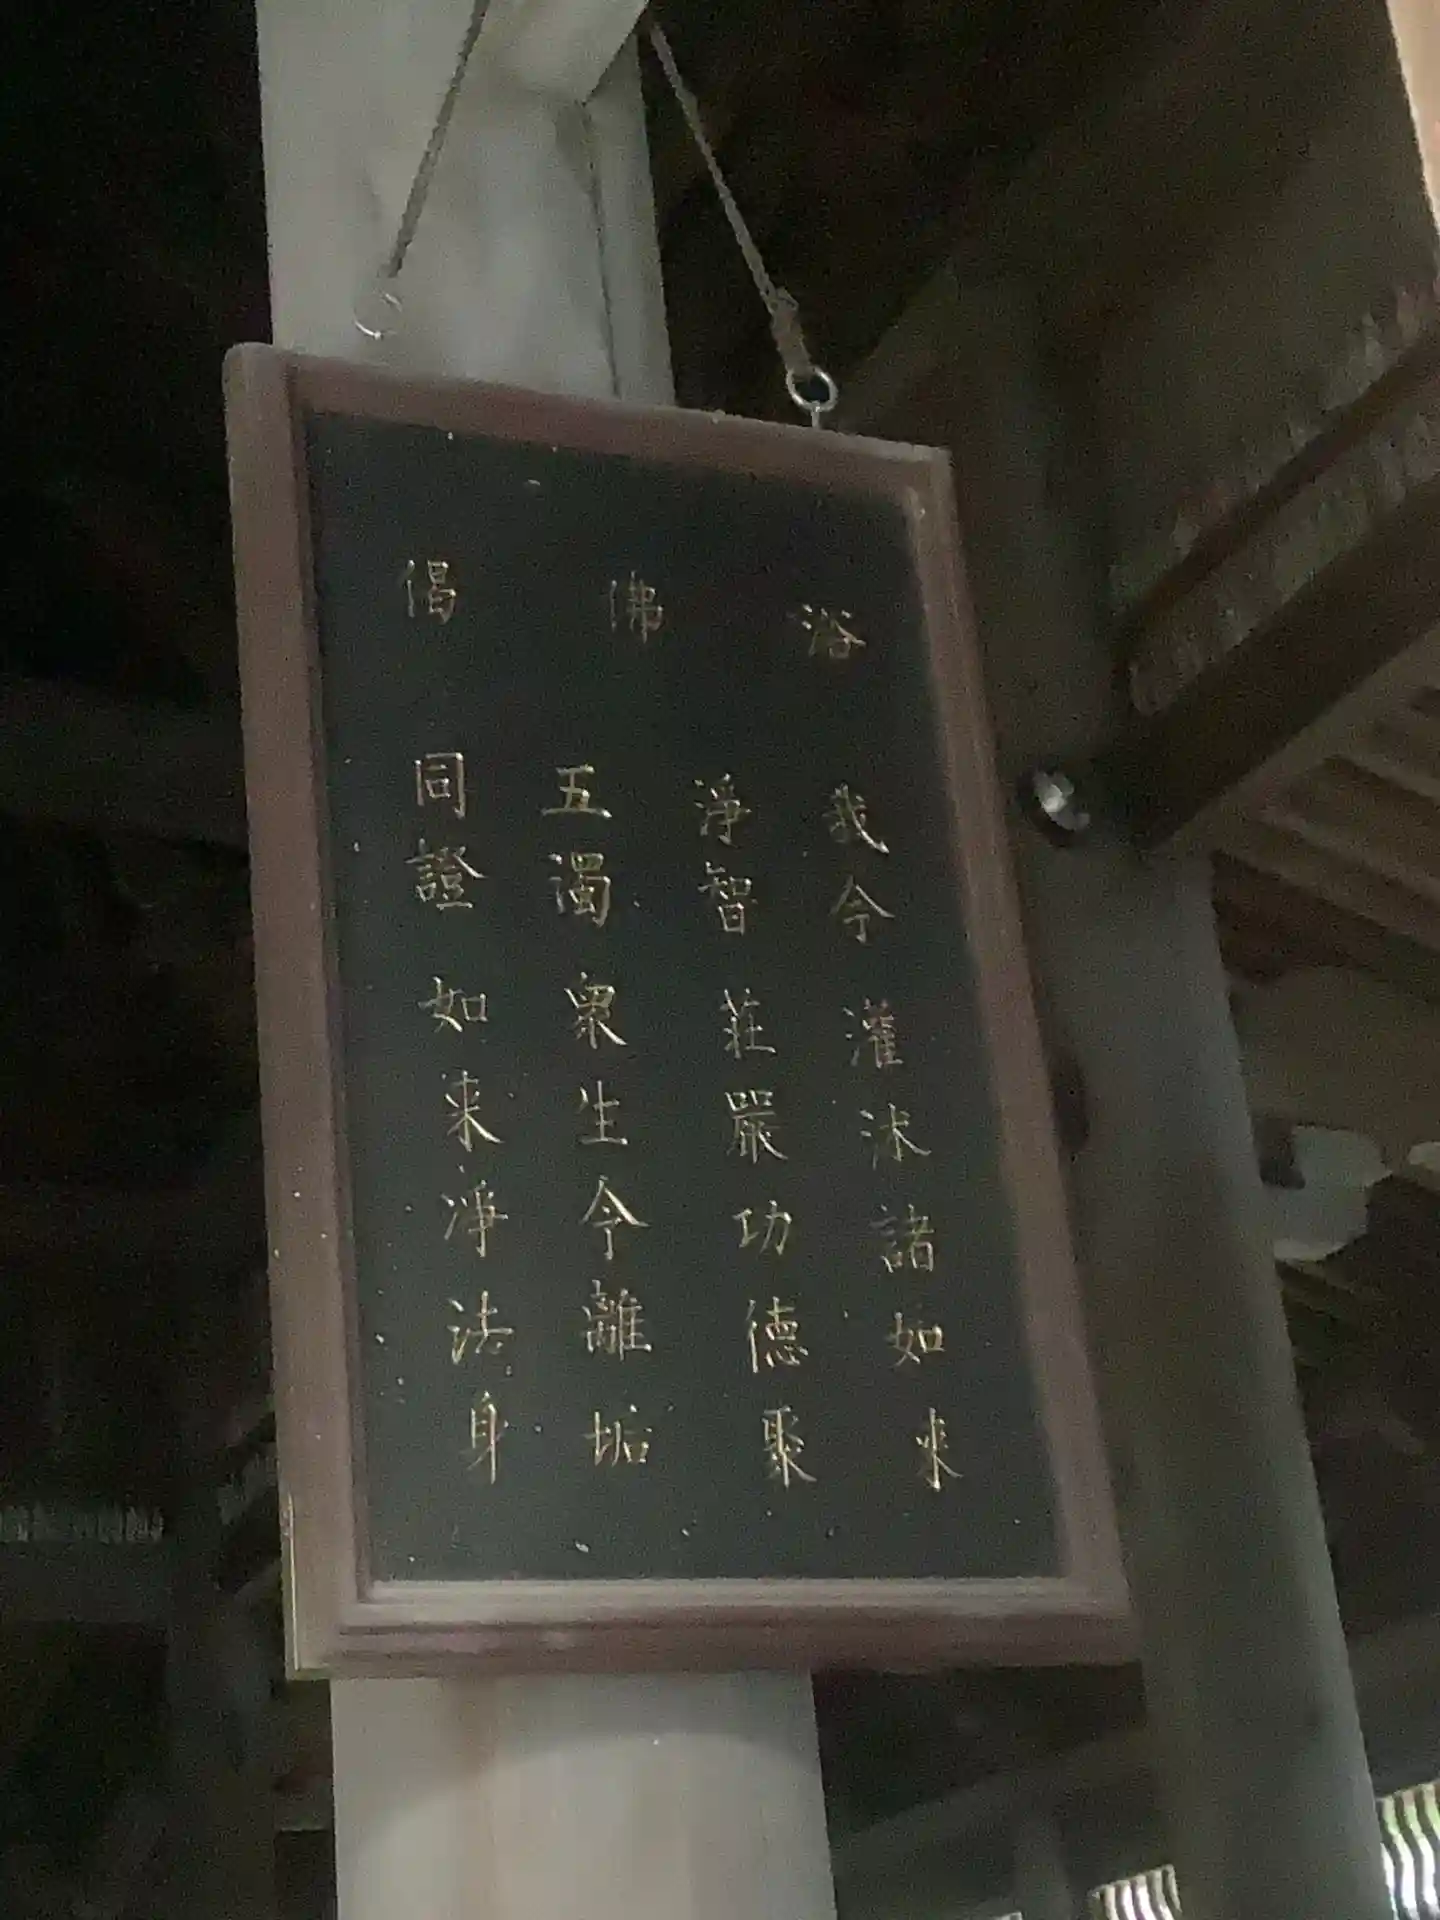 浴佛偈
我今灌沐諸如來
淨智莊嚴功德聚
五濁衆生令離垢
同證如来淨法身